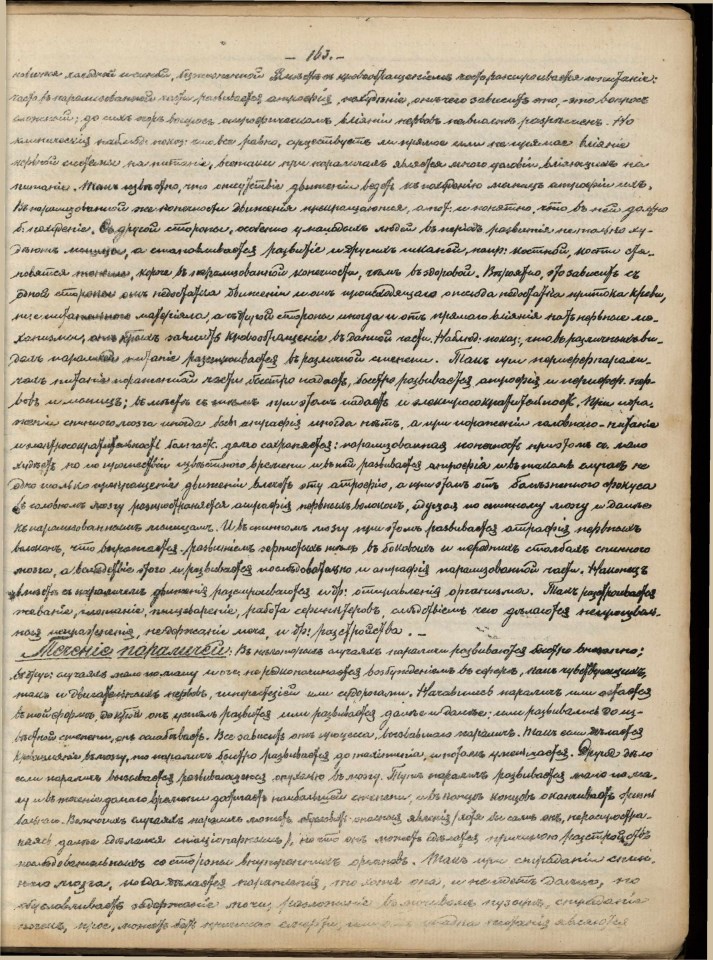 — 163. —
новится холодной и синей, безжизненной. Вместѣ съ кровообращеніемъ часто разстраивается и питаніе:
часто въ парализованной части развивается атрофія, похуденіе, отъ чего зависитъ это, это вопросъ
сложный; до сихъ поръ вопросъ о трофическомъ вліяніи нервовъ на вполнѣ разрѣшенъ. Но
клиническія наблюд. показ. что все равно, существуетъ ли прямое или не прямое вліяніе
нервной системы на питаніе, всетаки при параличахъ является много условій вліяющихъ на
питаніе. Такъ извѣстно, что отсутствіе движеній ведетъ къ похуденію мышцъ атрофіи ихъ.
Въ парализованной же конечности движенія прекращаются, а пот. и понятно, что въ ней должно
б. похуденіе. Съ другой стороны, особенно у молодыхъ людей въ періодъ развитія не только ху-
дѣютъ мышцы, а останавливается развитіе и другихъ тканей, напр. костной, кости ста-
новятся тоньше, короче въ парализованной конечности, чѣмъ въ здоровой. Вѣроятно, это зависитъ съ
одной стороны отъ недостатка движеній и отъ происходящаго отсюда недостатка притока крови,
питательнаго матеріала, а съ другой стороны иногда и отъ прямого вліянія на тѣ нервные ме-
ханизмы, отъ которыхъ зависитъ кровообращеніе въ данной части. Наблюд. показ., что въ различныхъ ви-
дахъ параличей питаніе разстраивается въ различной степени. Такъ при периферич. парали-
чахъ питаніе пораженной части быстро падаетъ, быстро развивается атрофія и периферич. нер-
вовъ и мышцъ; вмѣстѣ съ тѣмъ при этомъ падаетъ и электросократительность. При пора-
женіи спинного мозга иногда быв. атрофія иногда нѣтъ, а при пораженіи головного — питаніе
и электросократительность бол. част. долго сохраняется: парализованная конечность при этомъ съ мало
худѣетъ но по прошествіи извѣстнаго времени и въ ней развивается атрофія и въ такомъ случаѣ не
одно только прекращеніе движеній влечетъ эту атрофію, а при этомъ отъ болѣзненнаго фокуса
въ головномъ мозгу распространяется атрофія нервныхъ волоконъ, идущая по спинному мозгу и дальше
къ парализованнымъ мышцамъ. И въ спинномъ мозгу при этомъ развивается атрофія нервныхъ
волоконъ, что выражается развитіемъ зернистыхъ тѣлъ въ боковыхъ и переднихъ столбахъ спинного
мозга, а вслѣдствіе этого и развивается послѣдовательно и атрофія парализованной части. Наконецъ
вмѣстѣ съ параличемъ движенія разстраиваются и др. отправленія организма. Такъ разстраивается
жеваніе, глотаніе, пищевареніе, работа сфинктеровъ, слѣдствіемъ чего дѣлаются непроизволь-
ныя испражненія, недержаніе мочи, и др. разстройства. —
Теченіе параличей: Въ нѣкоторыхъ случаяхъ параличи развиваются быстро внезапно;
въ друг. случаяхъ мало по малу и оч. нерѣдко начинается возбужденіемъ въ сферѣ, какъ чувствующихъ,
такъ и двигательныхъ нервовъ, гиперестезіей или судорогами. Начавшись параличъ или остается
въ той формѣ, до какой онъ успѣлъ развиться или развивается дальше и дальше; или развившись до из-
вѣстной степени, онъ ослабѣваетъ. Все зависитъ отъ процесса, вызвавшаго параличъ. Такъ если дѣлается
кровоизліяніе въ мозгу, то параличъ быстро развивается до тахітит'а, и потомъ уменьшается. Другое дѣло
если параличъ вызывается развивающейся опухолью въ мозгу. Тутъ параличъ развивается мало по ма-
лу и въ теченіе долгаго времени достигаетъ наибольшей степени, и въ концѣ концовъ оканчивается
летально. Во многихъ случаяхъ параличъ можетъ обусловить опасныя явленія (хотя бы самъ онъ, не распространя-
няясь дальше дѣлался стаціонарнымъ), но что онъ можетъ сдѣлаться причиною разстройствъ
послѣдовательныхъ со стороны внутреннихъ органовъ. Такъ при страданіи спин-
ного мозга, когда дѣлается параплегія, то хотя она, и не идетъ дальше, но
обусловливаетъ задержаніе мочи, разложеніе въ мочевомъ пузырѣ, страданіе
почекъ, проч., можетъ быть причиною смерти, или отъ упадка питанія являются